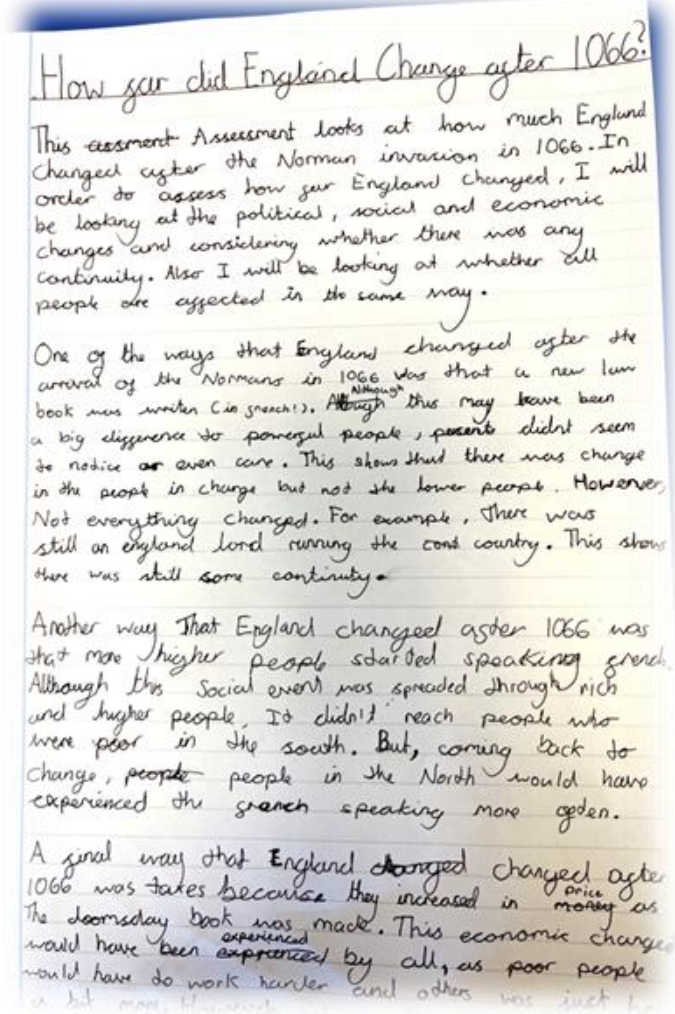 How far did England Change after 1066?
This assment Assessment looks at how much England
Changed after the Norman invasion in 1066. In
order to assess how far England changed, I will
be looking at the political, social and economic
changes and considering whether there was any
continuity. Also I will be looking at whether all
people are affected in the same way.
One of the ways that England changed after the
arrival of the Normans in 1066 was that a new law
book was written (in french!). Although this may have been
a big difference to powerful people, didnt seem
to notice or even care. This shows that there was change
in the people in charge but not the lower people. However,
Not everything changed. For example, There was
still an england lord running the country. This shows
there was still some continuity.
Another way That England changed after 1066 was
that more higher people started speaking french.
Although this Social event was spreaded through rich
and higher people, It didn't reach people who
were poor in the south. But, coming back to
change, people people in the North would have
experienced the french speaking more often.
A final way that England changed changed after
1066 was taxes because they increased in money price as
The doomsday book was made. This economic change
would have been experienced by all, as poor people
would have to work harder and others was just
a bit more. However